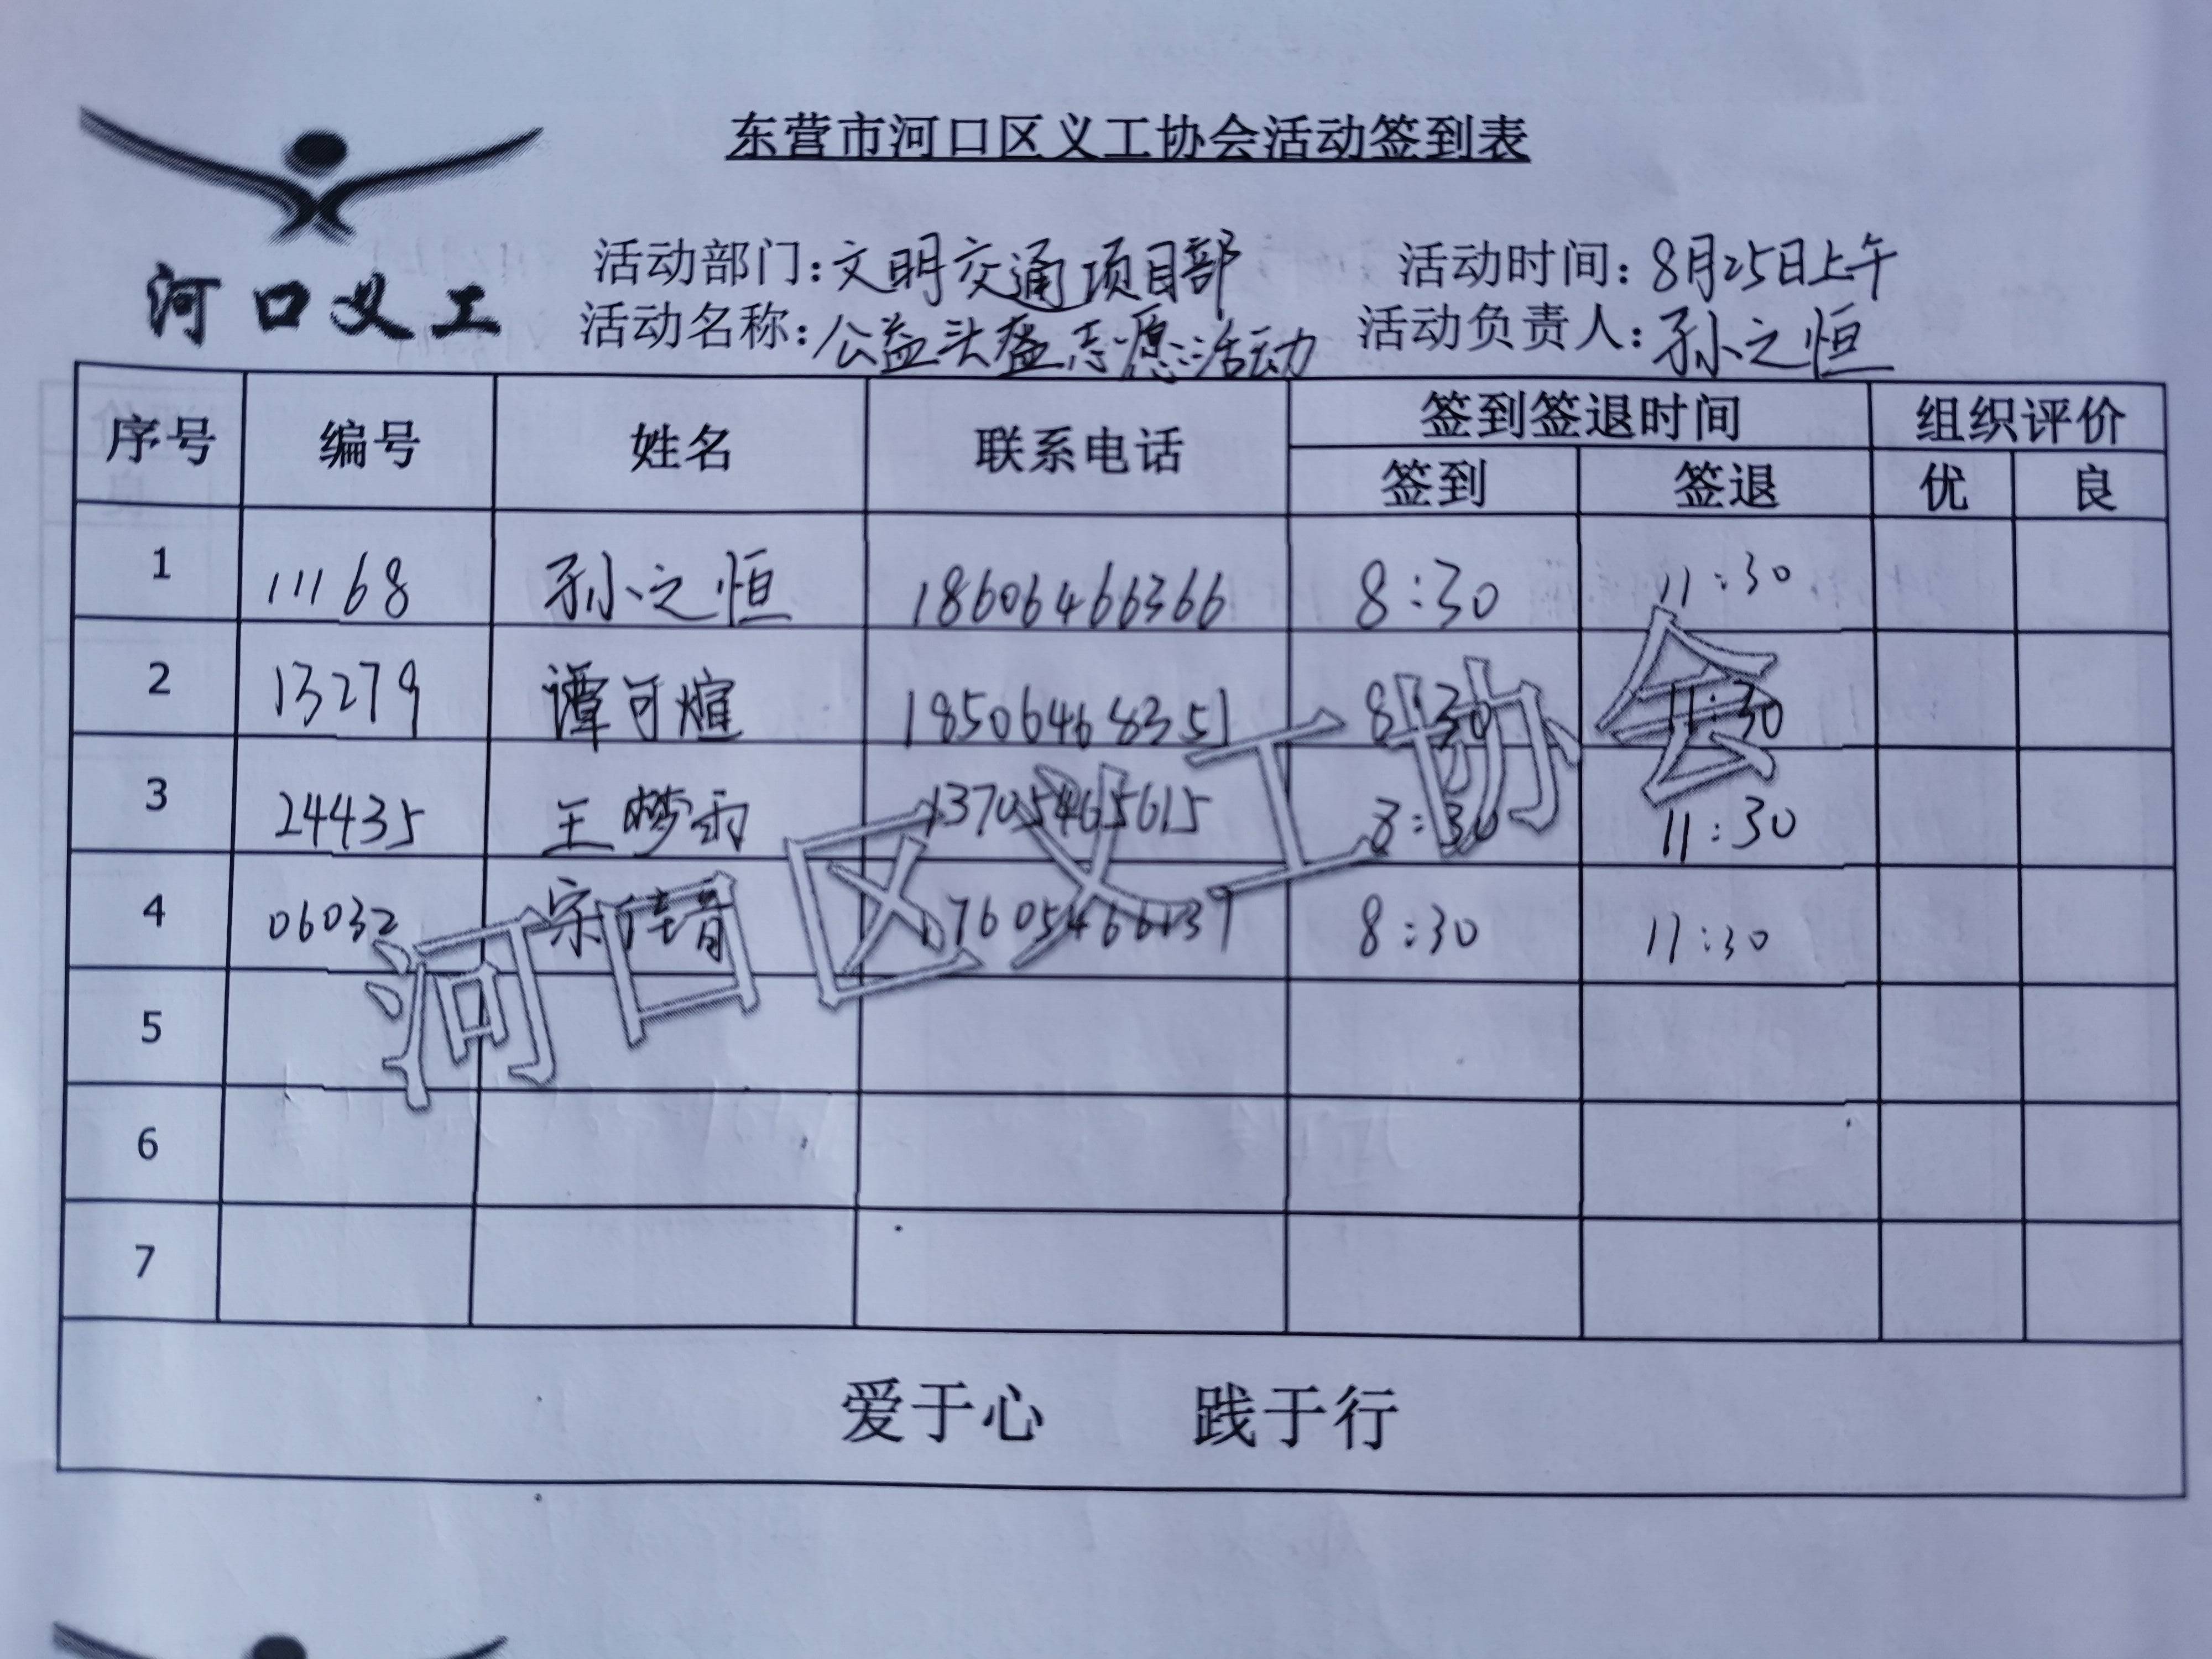 东营市河口区义工协会活动签到表
河口义工
活动部门：文明交通项目部 活动时间：8月25日上午
活动名称：公益头盔志愿活动 活动负责人：孙之恒
序号 编号 姓名 联系电话 签到签退时间 组织评价
签到 签退 优 良
1 11168 孙之恒 18606466366 8:30 11:30
2 13279 谭可煊 18506468351 8:30 11:30
3 24435 王梦雨 13705465615 8:30 11:30
4 06032 宋佳音 17605466137 8:30 11:30
5
6
7
河口区义工协会
爱于心 践于行